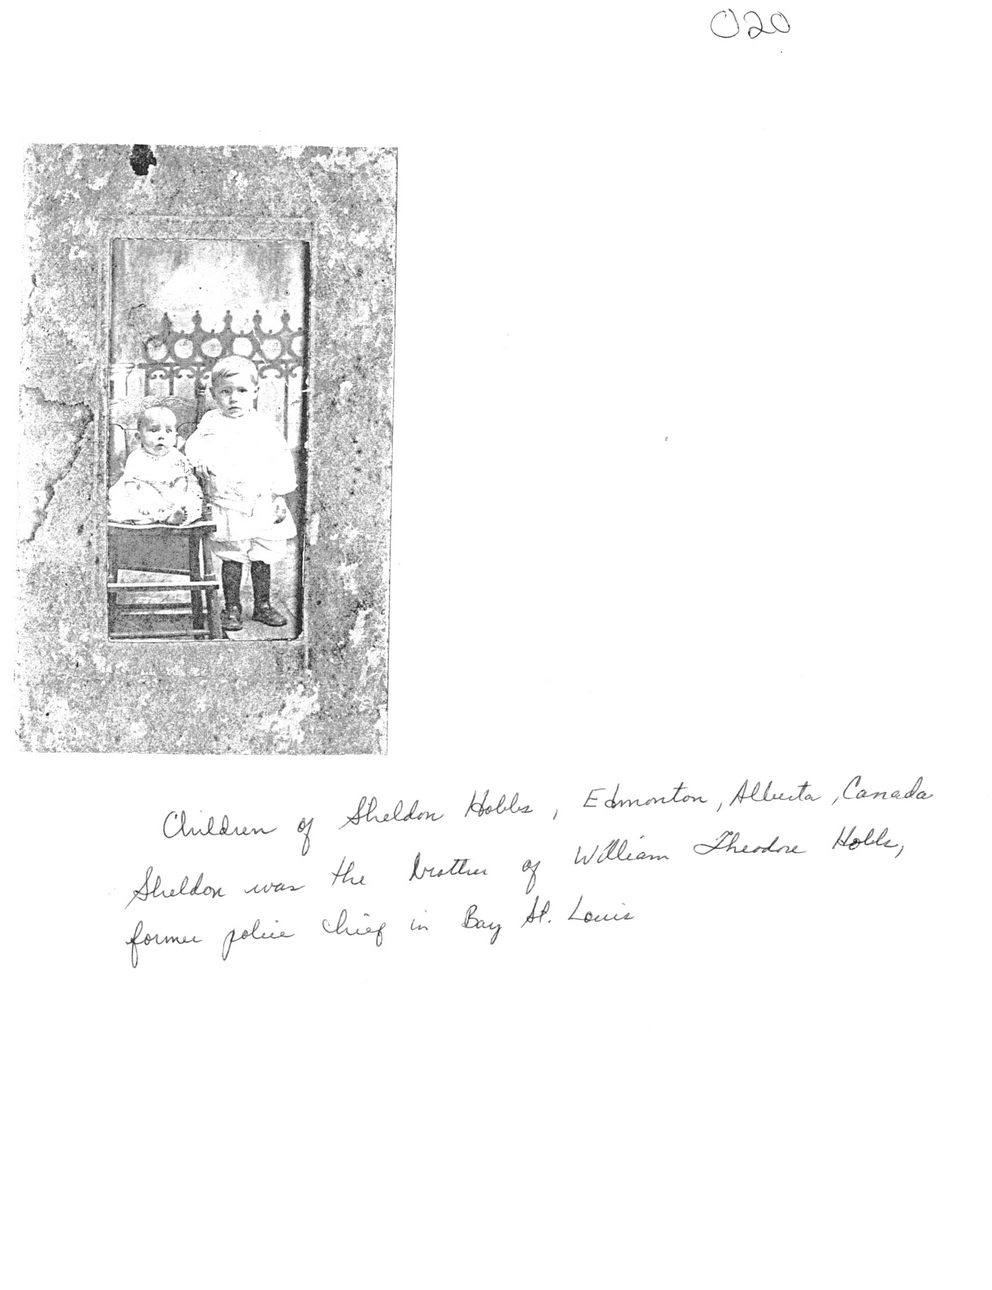 020
Children of Sheldon Hobbs, Edmonton, Alberta, Canada
Sheldon was the brother of William Theodore Hobbs,
former police chief in Bay St. Louis